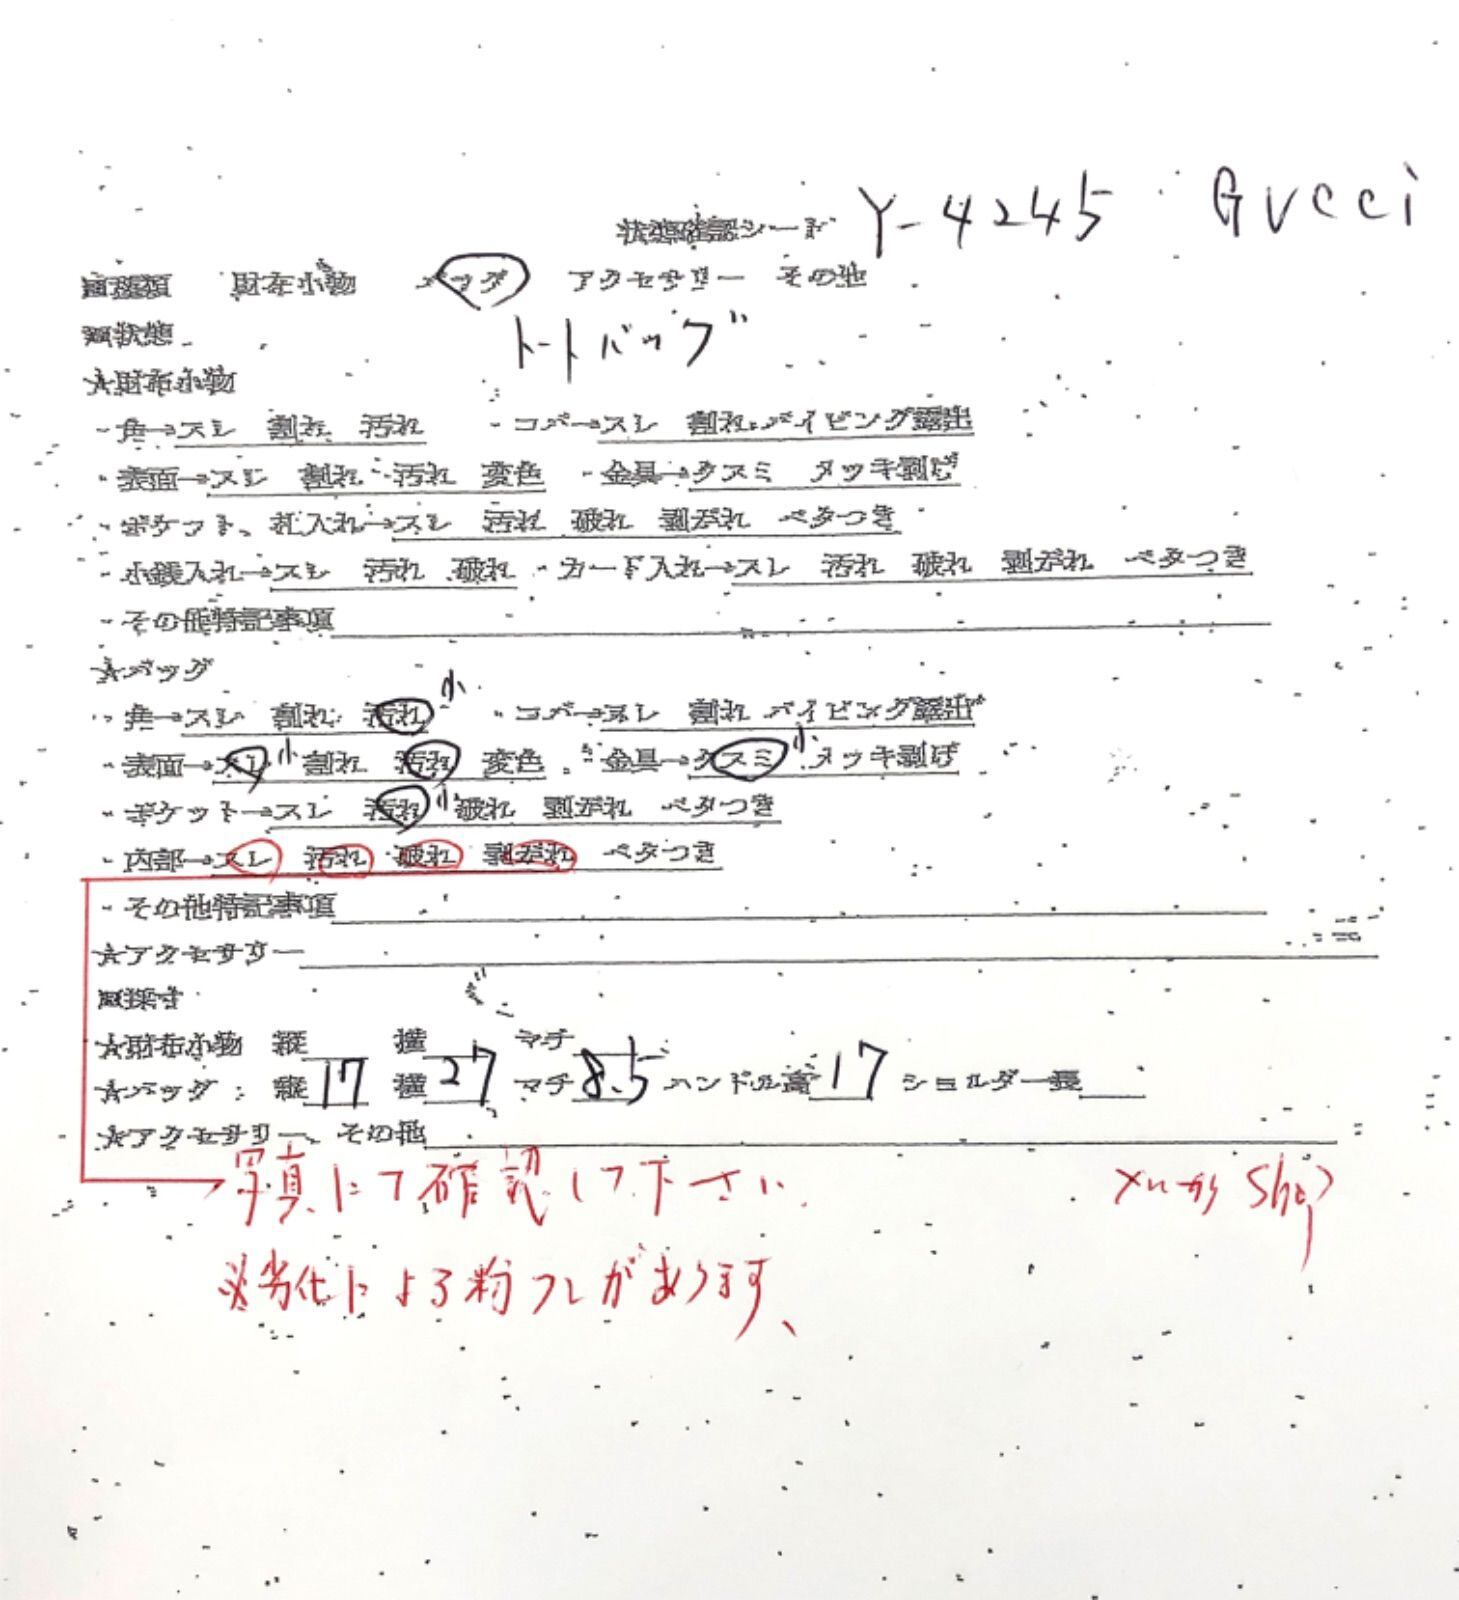 状態確認シート Y-4245 GUCCI
■種類 財布小物 バッグ アクセサリー その他
■状態 トートバッグ
★財布小物
・角→スレ 割れ 汚れ ・コバ→スレ 割れ パイピング露出
・表面→スレ 割れ 汚れ 変色 ・金具→クスミ メッキ剥げ
・ポケット、札入れ→スレ 汚れ 破れ 剥がれ ベタつき
・小銭入れ→スレ 汚れ 破れ ・カード入れ→スレ 汚れ 破れ 剥がれ ベタつき
・その他特記事項
★バッグ
・角→スレ 割れ 汚れ 小 ・コバ→スレ 割れ パイピング露出
・表面→スレ 小 割れ 汚れ 変色 ・金具→クスミ 小 メッキ剥げ
・ポケット→スレ 汚れ 小 破れ 剥がれ ベタつき
・内部→スレ 汚れ 破れ 剥がれ ベタつき
・その他特記事項
★アクセサリー
■採寸
★財布小物 縦 横 マチ
★バッグ 縦 17 横 27 マチ 8.5 ハンドル高 17 ショルダー長
★アクセサリー、その他
写真にて確認して下さい
※劣化による粉フレがあります、
Shop